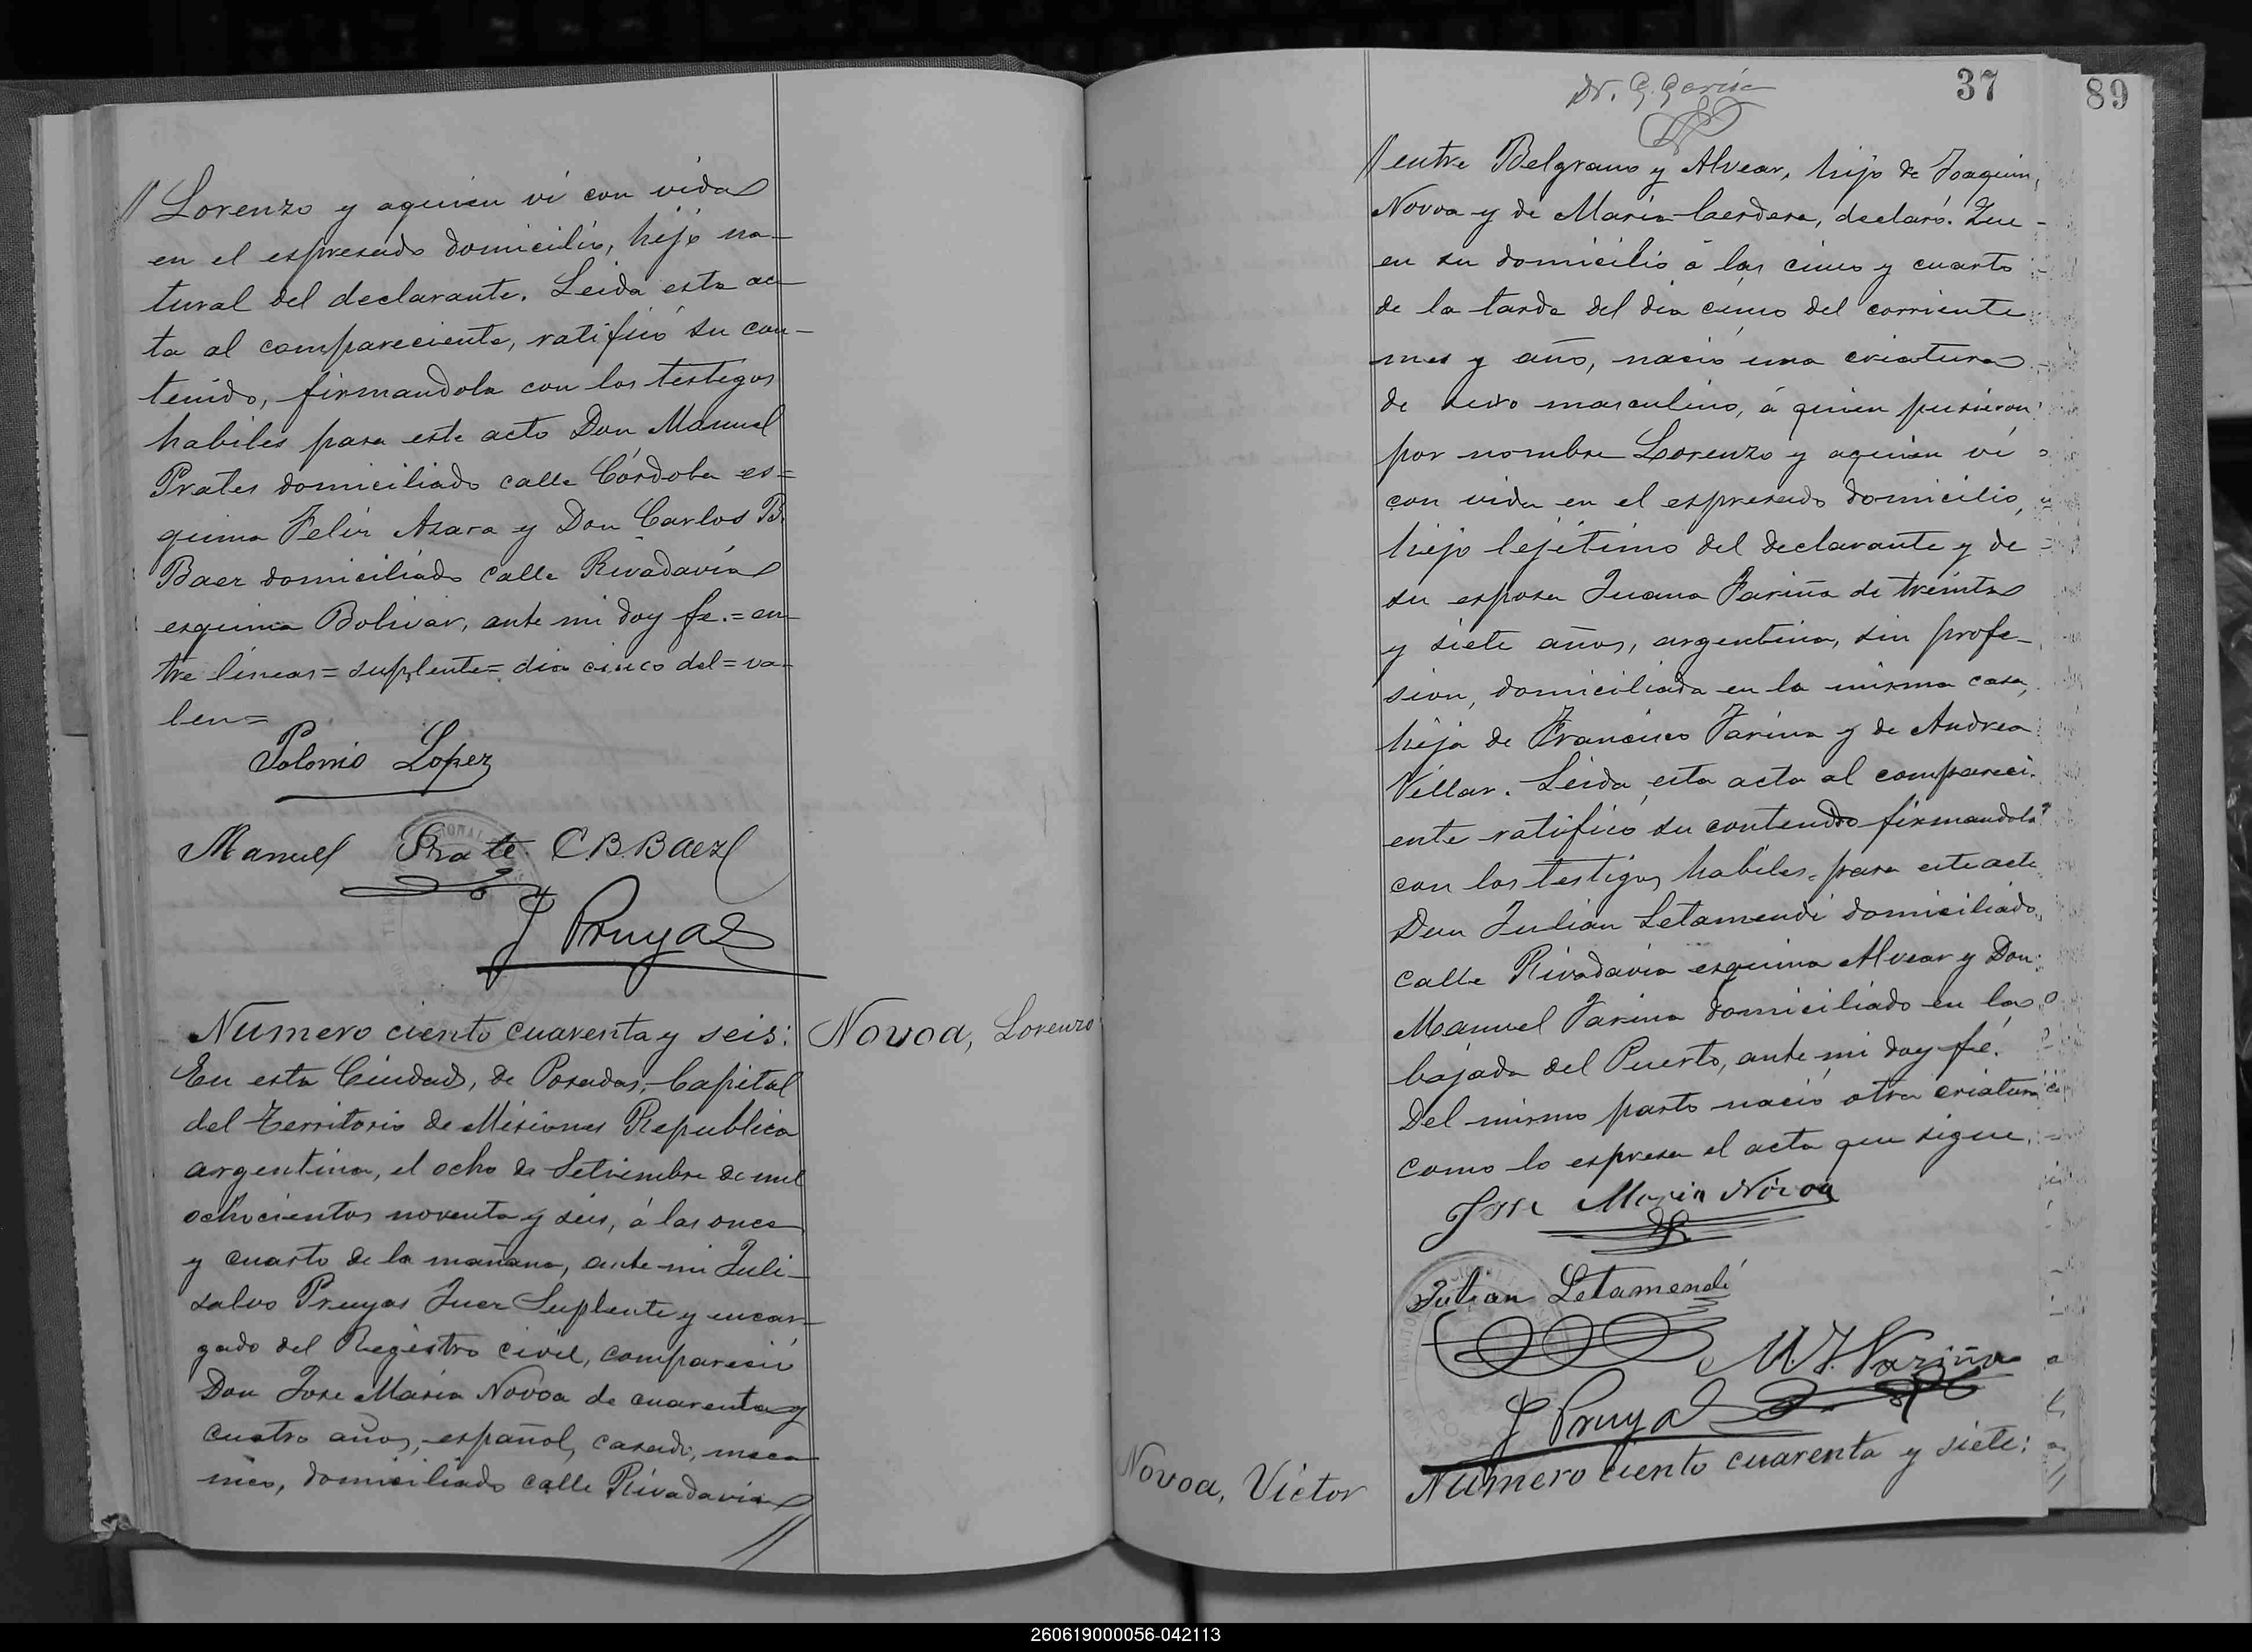 // Lorenzo y aquien vi con vida
en el espresado domicilio, hijo na-
tural del declarante. Leida esta ac-
ta al compareciente, ratificó su con-
tenido, firmandola con los testigos
habiles para este acto Don Manuel
Prates domiciliado calle Córdoba es=
quina Felix Azara y Don Carlos B.
Baez domiciliado calle Rivadavia
esquina Bolivar, ante mi doy fe.= en-
tre lineas= suplente= dia cinco del= va-
len=
Polonio Lopez
Manuel Prate C.B.Baez
J Pruyas
Numero ciento cuarenta y seis: Novoa, Lorenzo
En esta Ciudad, de Posadas, Capital
del Territorio de Misiones Republica
argentina, el ocho de Setiembre de mil
ochocientos noventa y seis, á las once
y cuarto de la mañana, ante mi Juli-
salvo Pruyas Juez Suplente y encar-
gado del Registro civil, compareció
Don Jose Maria Novoa de cuarenta y
cuatro años, español, casado, meca-
nico, domiciliado calle Rivadavia
//
37
89
// entre Belgrano y Alvear, hijo de Joaquin,
Novoa y de Maria Cerdera, declaró. Que
en su domicilio á las cinco y cuarto
de la tarde del dia cinco del corriente
mes y año, nació una criatura
de sexo masculino, á quien pusieron
por nombre Lorenzo y aquien vi
con vida en el espresado domicilio,
hijo lejítimo del declarante y de
su esposa Juana Fariña de treinta
y siete años, argentina, sin profe-
sion, domiciliada en la misma casa,
hija de Francisco Farina y de Andrea
Villar. Leida esta acta al compareci-
ente ratificó su contendo firmandola
con los testigos habiles para este acto
Don Julian Letamendi domiciliado
calle Rivadavia esquina Alvear y Don
Manuel Farina domiciliado en la
bajada del Puerto, ante mi doy fé.
Del mismo parto nació otra criatura
como lo espresa el acta que sigue.
Jose Maria Novoa
Julian Letamendi
M J. Fariña
J Pruyas
Novoa, Víctor Número ciento cuarenta y siete:
260619000056-042113